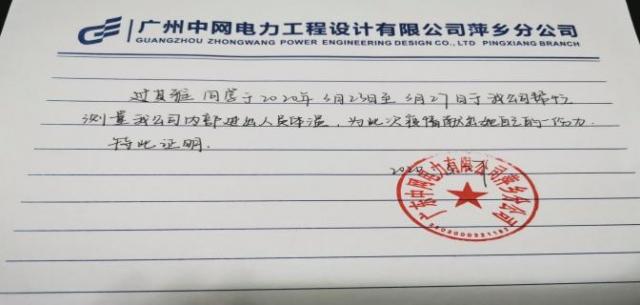 广州中网电力工程设计有限公司萍乡分公司
GUANGZHOU ZHONGWANG POWER ENGINEERING DESIGN CO., LTD PINGXIANG BRANCH
同学于2020年3月23日至3月27日于我公司帮忙
测量我公司内部进出人员体温，为此次疫情献出她自己的一份力.
特此证明.
2020
广东中网电力有限公司萍乡分公司